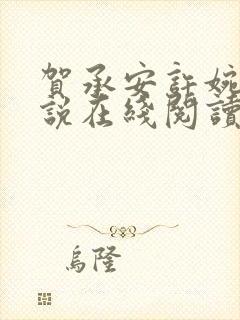 賀承安許婉
說在綫閱讀
烏隆